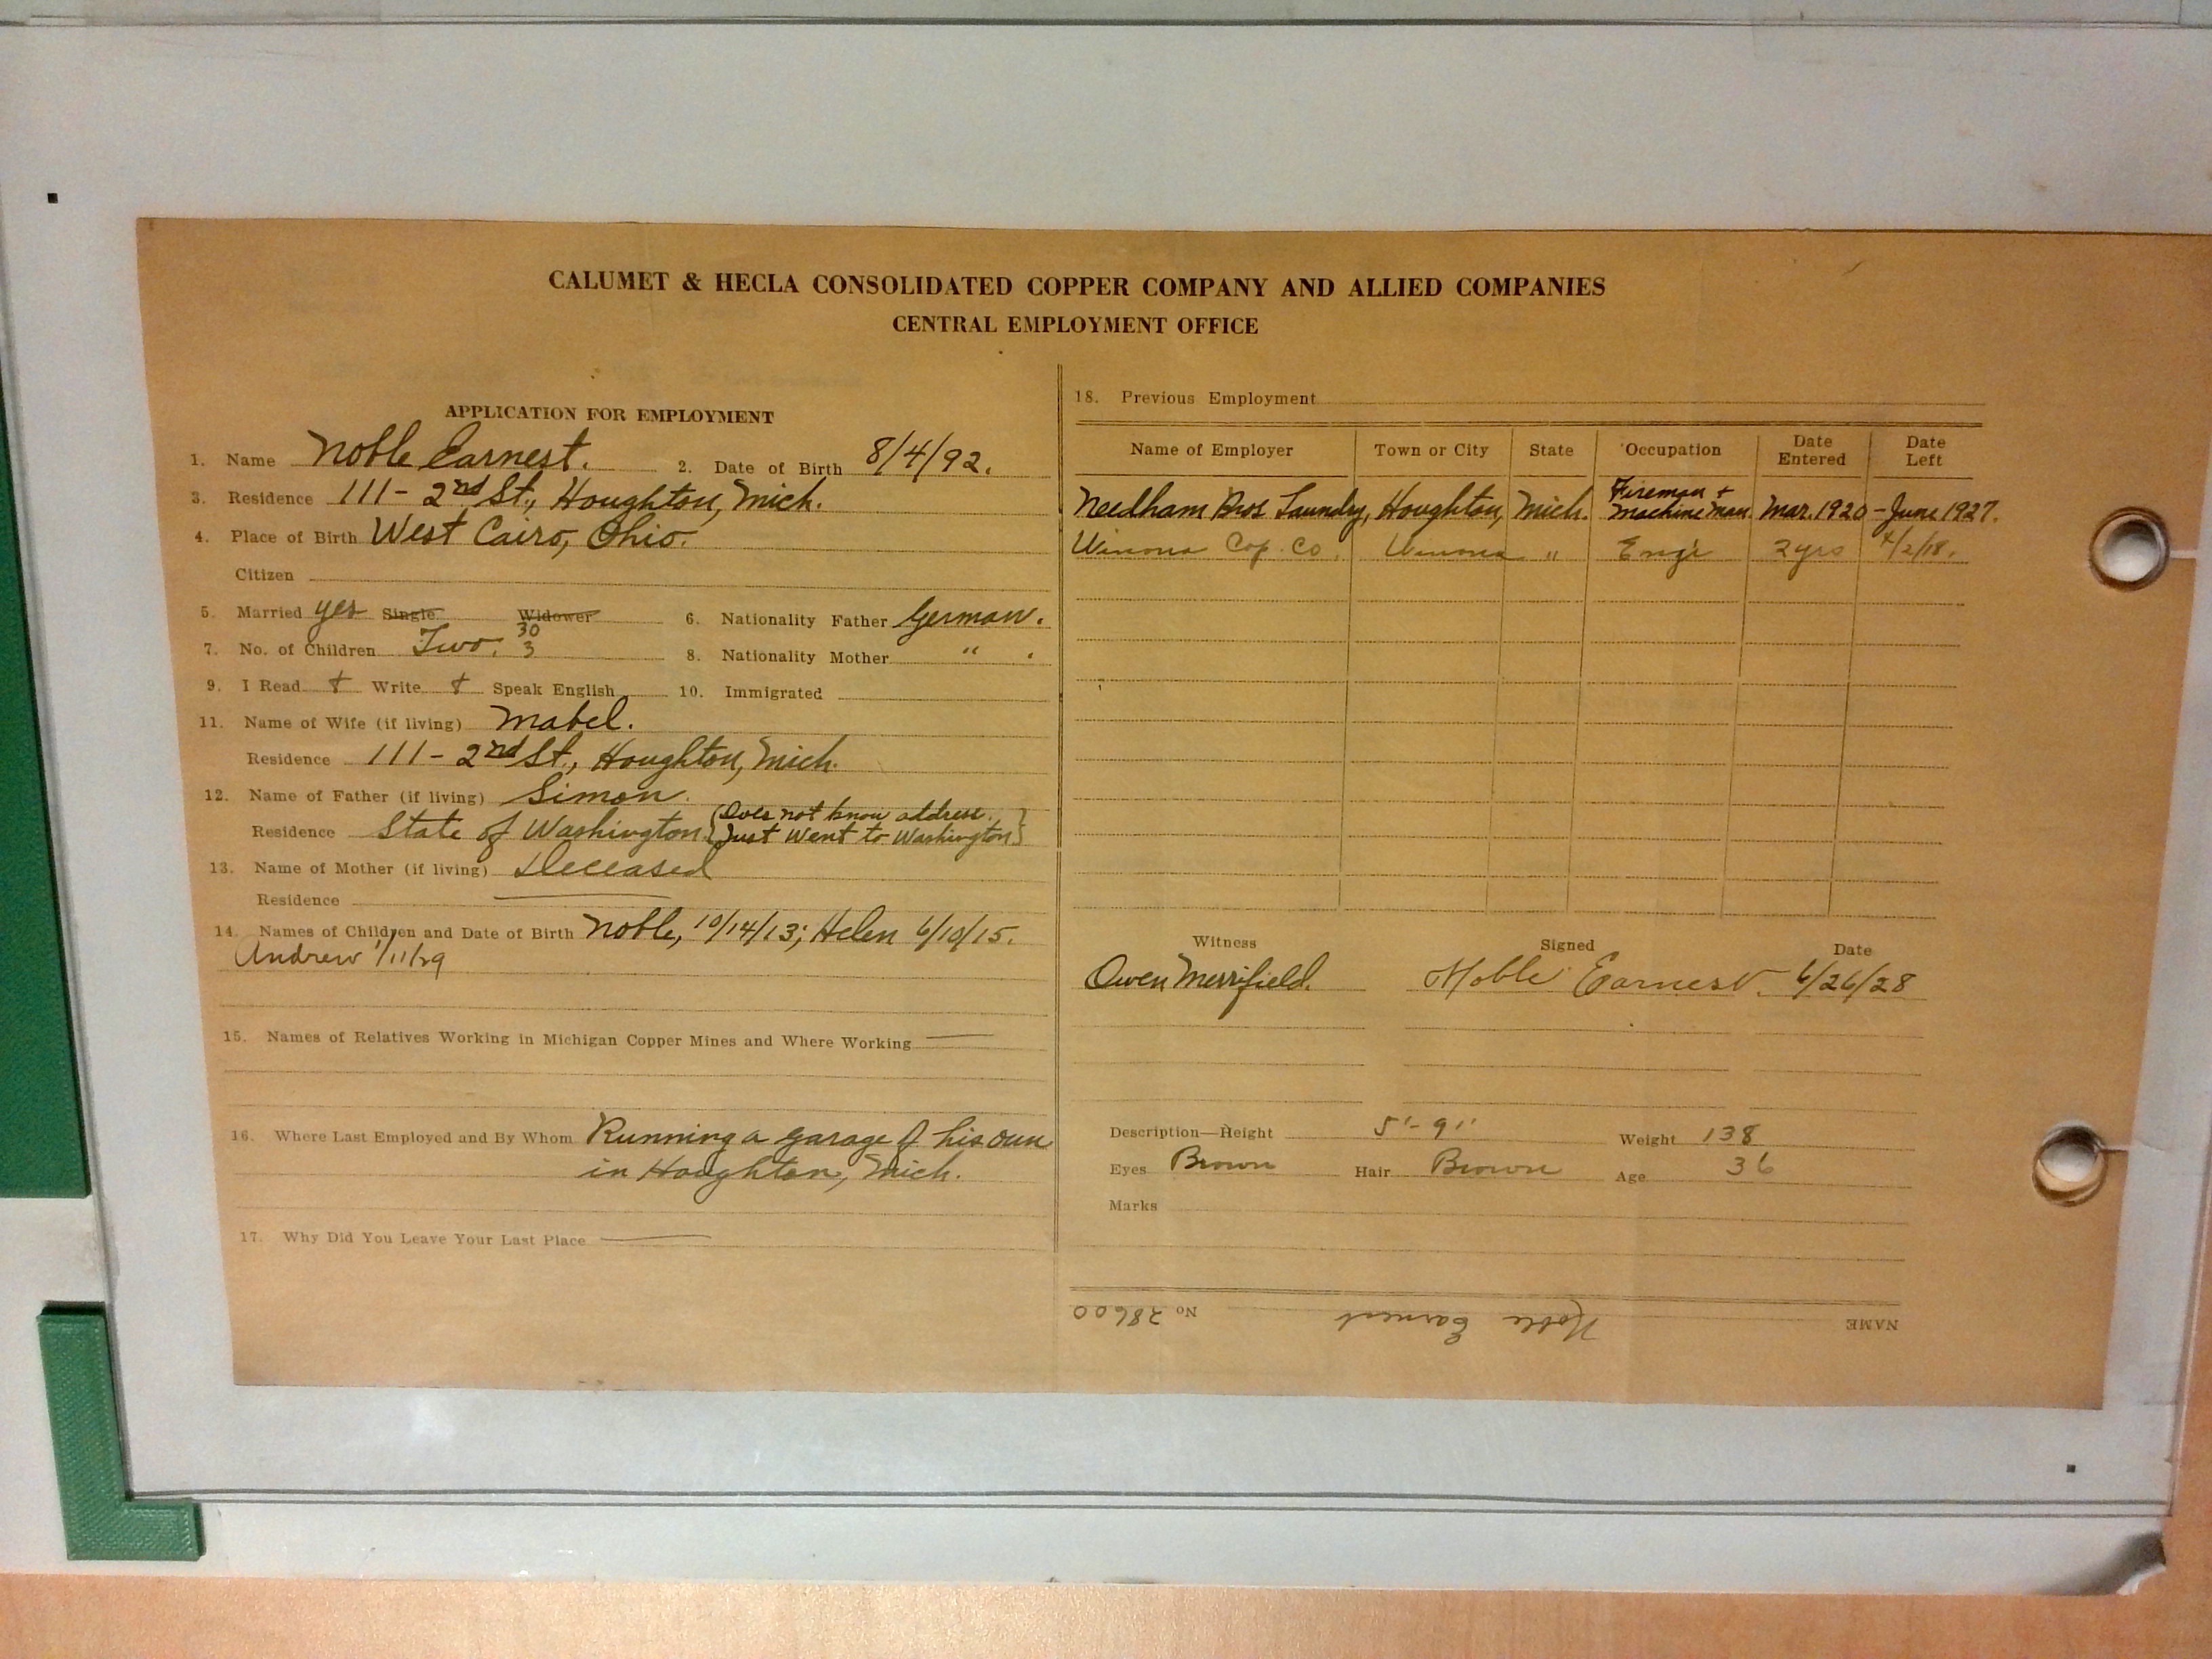 CALUMET & HECLA CONSOLIDATED COPPER COMPANY AND ALLIED COMPANIES
CENTRAL EMPLOYMENT OFFICE
APPLICATION FOR EMPLOYMENT
1. Name Noble Earnest. 2. Date of Birth 8/4/92.
3. Residence 111 - 2nd St., Houghton, Mich.
4. Place of Birth West Cairo, Ohio.
Citizen
5. Married yes Single Widower 6. Nationality Father German.
30
7. No. of Children Two. 3 8. Nationality Mother " .
9. I Read + Write + Speak English 10. Immigrated
11. Name of Wife (if living) Mabel.
Residence 111 - 2nd St., Houghton, Mich.
12. Name of Father (if living) Simon.
Residence State of Washington. {Does not know address. Just went to Washington}
13. Name of Mother (if living) Deceased
Residence
14. Names of Children and Date of Birth Noble, 10/14/13; Helen 6/10/15.
Andrew 1/11/29
15. Names of Relatives Working in Michigan Copper Mines and Where Working —
16. Where Last Employed and By Whom Running a garage of his own
in Houghton, Mich.
17. Why Did You Leave Your Last Place —
18. Previous Employment
Name of Employer Town or City State Occupation Date Entered Date Left
Needham Bros Laundry, Houghton, Mich. Fireman + Machine Man Mar. 1920 - June 1927.
Winona Cop. Co. Winona " Engr 2 yrs 4/2/18.
Witness Signed Date
Owen Merrifield. Noble Earnest. 6/26/28
Description—Height 5'-9" Weight 138
Eyes Brown Hair Brown Age 36
Marks
NAME Noble Earnest No 28600